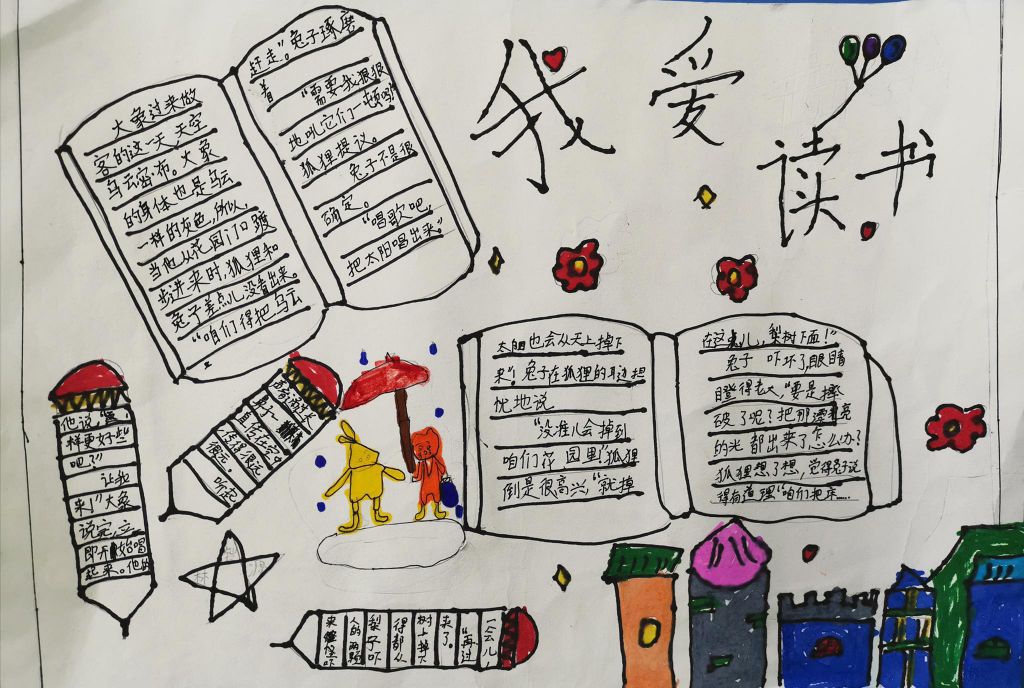 我爱
读书
大象过来做
客的这一天,天空
乌云密布。大象
的身体也是乌云
一样的灰色,所以,
当他从花园门口踱
步进来时,狐狸和
兔子差点儿没看出来。
“咱们得把乌云
赶走”。兔子琢磨
着 “需要我狠狠
地吼它们一顿吗?
狐狸提议。
兔子不是很
确定。
“唱歌吧,
把太阳唱出来。”
太阳也会从天上掉下
来”!兔子在狐狸的耳边担
忧地说
“没准儿会掉到
咱们花园里”狐狸
倒是很高兴,“就掉
在这儿,梨树下面!”
兔子 吓坏了,眼睛
瞪得老大,“要是摔
破了呢?把那漂亮
的光都出来了,怎么办?
狐狸想了想,觉得兔子说
得有道理“咱们把床……
他说,
样更好些
吧?”
让我
来!”大象
说完,立
即开始唱
起来。他的
很远,
听起
一会儿!
“再过
来了。
树上掉下
得都从
梨子吓
人的
来
林